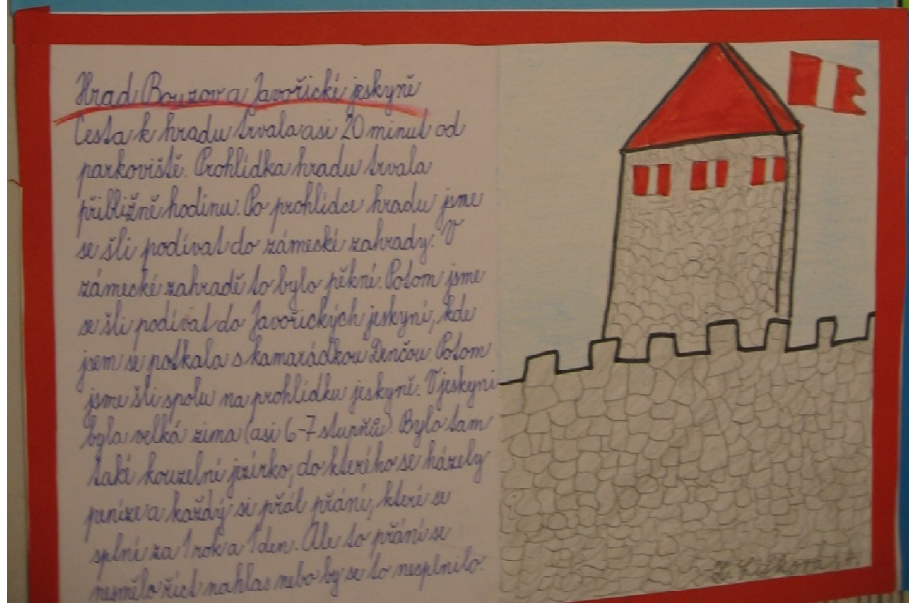 Hrad Bouzov a Javořické jeskyně
Cesta k hradu trvala asi 20 minut od
parkoviště. Prohlídka hradu trvala
přibližně hodinu. Po prohlídce hradu jsme
se šli podívat do zámecké zahrady. V
zámecké zahradě to bylo pěkné. Potom jsme
se šli podívat do Javořických jeskyní, kde
jsem se potkala s kamarádkou Denčou. Potom
jsme šli spolu na prohlídku jeskyně. V jeskyni
byla velká zima (asi 6-7 stupňů). Bylo tam
také kouzelné jezírko, do kterého se házely
peníze a každý si přál přání, které se
splní za 1 rok a 1 den. Ale to přání se
nesmělo říct nahlas nebo by se to nesplnilo.